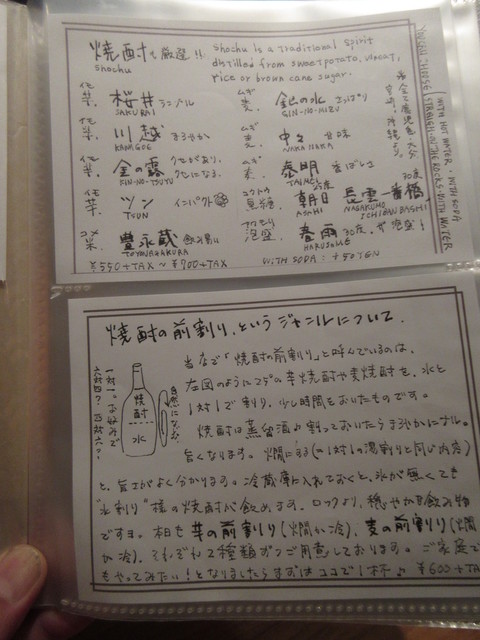 焼酎も厳選!! Shochu is a traditional spirit
shochu distilled from sweet potato, wheat,
rice or brown cane sugar.
イモ 芋 桜井
SAKURAI
イモ 芋 川越 まろやか
KAWAGOE
イモ 芋 金の露 クセがあり、クセになる。
KIN-NO-TSUYU
イモ 芋 ツン インパクト
TSUN
コメ 米 豊永蔵 飲み易い
TOYONAGAKURA
¥550+TAX ~ ¥700+TAX
ムギ 麦 銀の水 さっぱり
GIN-NO-MIZU
ムギ 麦 中々 甘味
NAKANAKA
ムギ 麦 泰明 香ばしさ
TAIMEI
コクトウ 黒糖 朝日 長雲一番橋 30度
ASAHI NAGAKUMO ICHIBANBASHI
アワモリ 泡盛 春雨 30度
HARUSAME
WITH SODA : +50YEN
WITH HOT WATER・WITH SODA
YOU CAN CHOOSE (STRAIGHT・ON THE ROCKS・WITH WATER
焼酎の前割り、というジャンルについて。
当店で「焼酎の前割り」と呼んでいるのは、
左図のように25°の芋焼酎や麦焼酎を、水と
1対1で割り、少し時間をおいたものです。
焼酎は蒸留酒、割っておいたらまろやかになる。
旨くなります。燗にする(の1対1の湯割りと同じ内容)
と、旨さがよく分かります。冷蔵庫に入れておくと、氷が無くても
"水割り"様の焼酎が飲めます。ロックより、穏やかな飲み物
ですョ。本日も芋の前割り(燗か冷)、麦の前割り(燗
か冷)、それぞれ2種類ずつご用意しております。ご家庭で
もやってみたい!となりましたらまずはココで1杯♪ ¥600+TA
焼酎
水
一対一。お好みで
六対四?、五対六?…